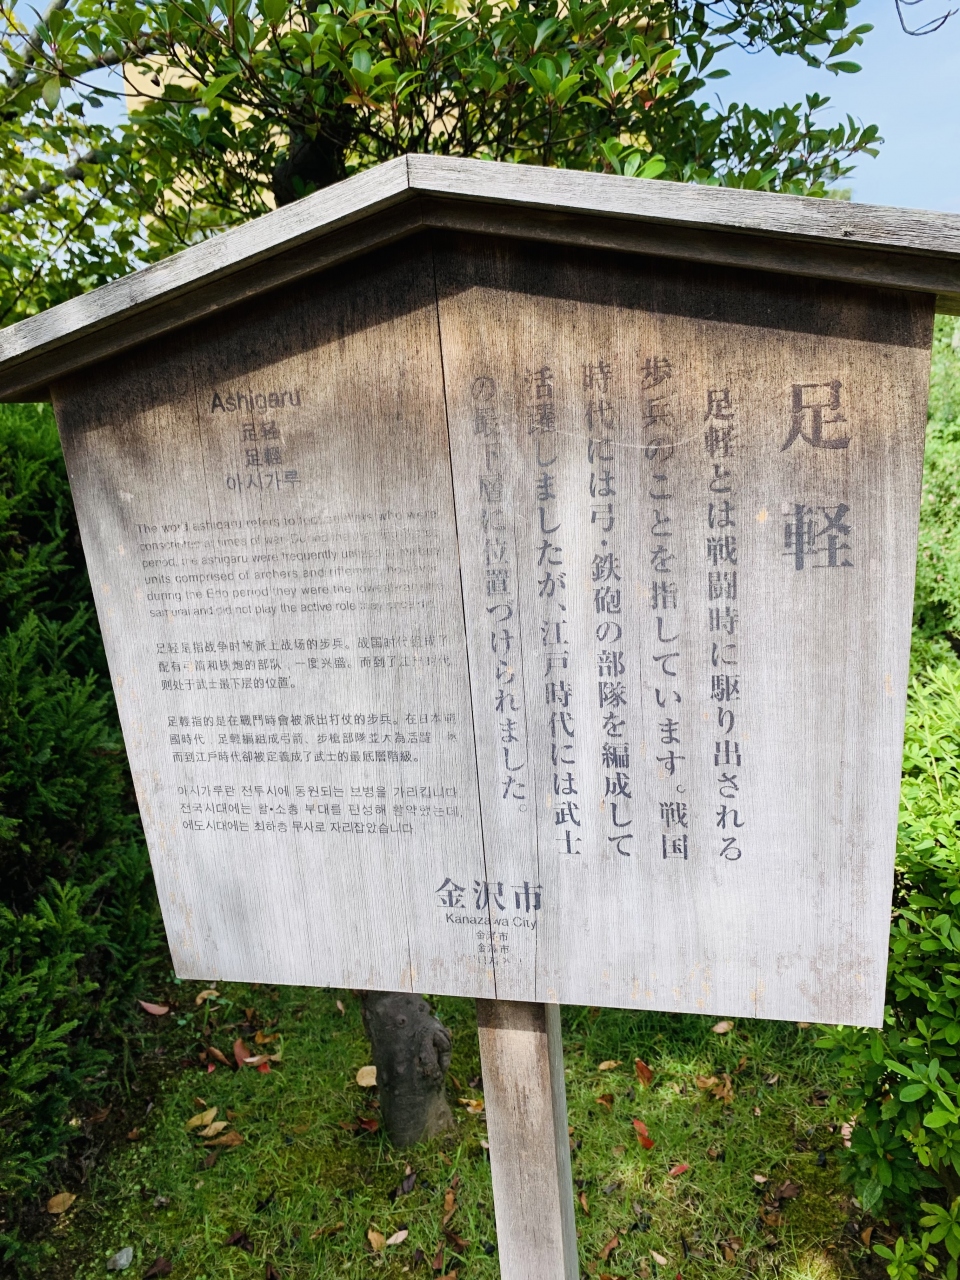 足軽
足軽とは戦闘時に駆り出される
歩兵のことを指しています。戦国
時代には弓・鉄砲の部隊を編成して
活躍しましたが、江戸時代には武士
の最下層に位置づけられました。
Ashigaru
足轻
足輕
아시가루
The word ashigaru refers to foot soldiers who were
conscripted at times of war. During the
period, the ashigaru were frequently utilized in military
units comprised of archers and riflemen, however,
during the Edo period they were the lowest
samurai and did not play the active role
足轻是指战争时被派上战场的步兵。战国时代组成了
配有弓箭和铁炮的部队，一度兴盛。而到了江户时代，
则处于武士最下层的位置。
足輕指的是在戰鬥時會被派出打仗的步兵。在日本戰
國時代，足輕編組成弓箭、步槍部隊並大為活躍，
而到江戶時代卻被定義成了武士的最底層階級。
아시가루란 전투시에 동원되는 보병을 가리킵니다.
전국시대에는 활•소총 부대를 편성해 활약했는데,
에도시대에는 최하층 무사로 자리잡았습니다.
金沢市
Kanazawa City
金泽市
金澤市